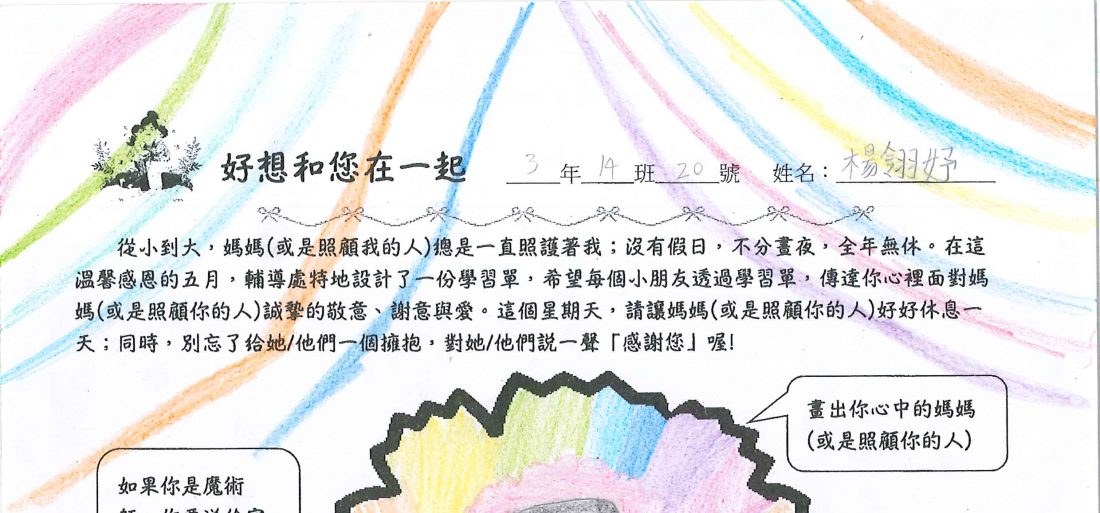 好想和您在一起 3年14班20號 姓名：楊翎妤
從小到大，媽媽(或是照顧我的人)總是一直照護著我；沒有假日，不分晝夜，全年無休。在這
溫馨感恩的五月，輔導處特地設計了一份學習單，希望每個小朋友透過學習單，傳達你心裡面對媽
媽(或是照顧你的人)誠摯的敬意、謝意與愛。這個星期天，請讓媽媽(或是照顧你的人)好好休息一
天；同時，別忘了給她/他們一個擁抱，對她/他們說一聲「感謝您」喔!
畫出你心中的媽媽
(或是照顧你的人)
如果你是魔術